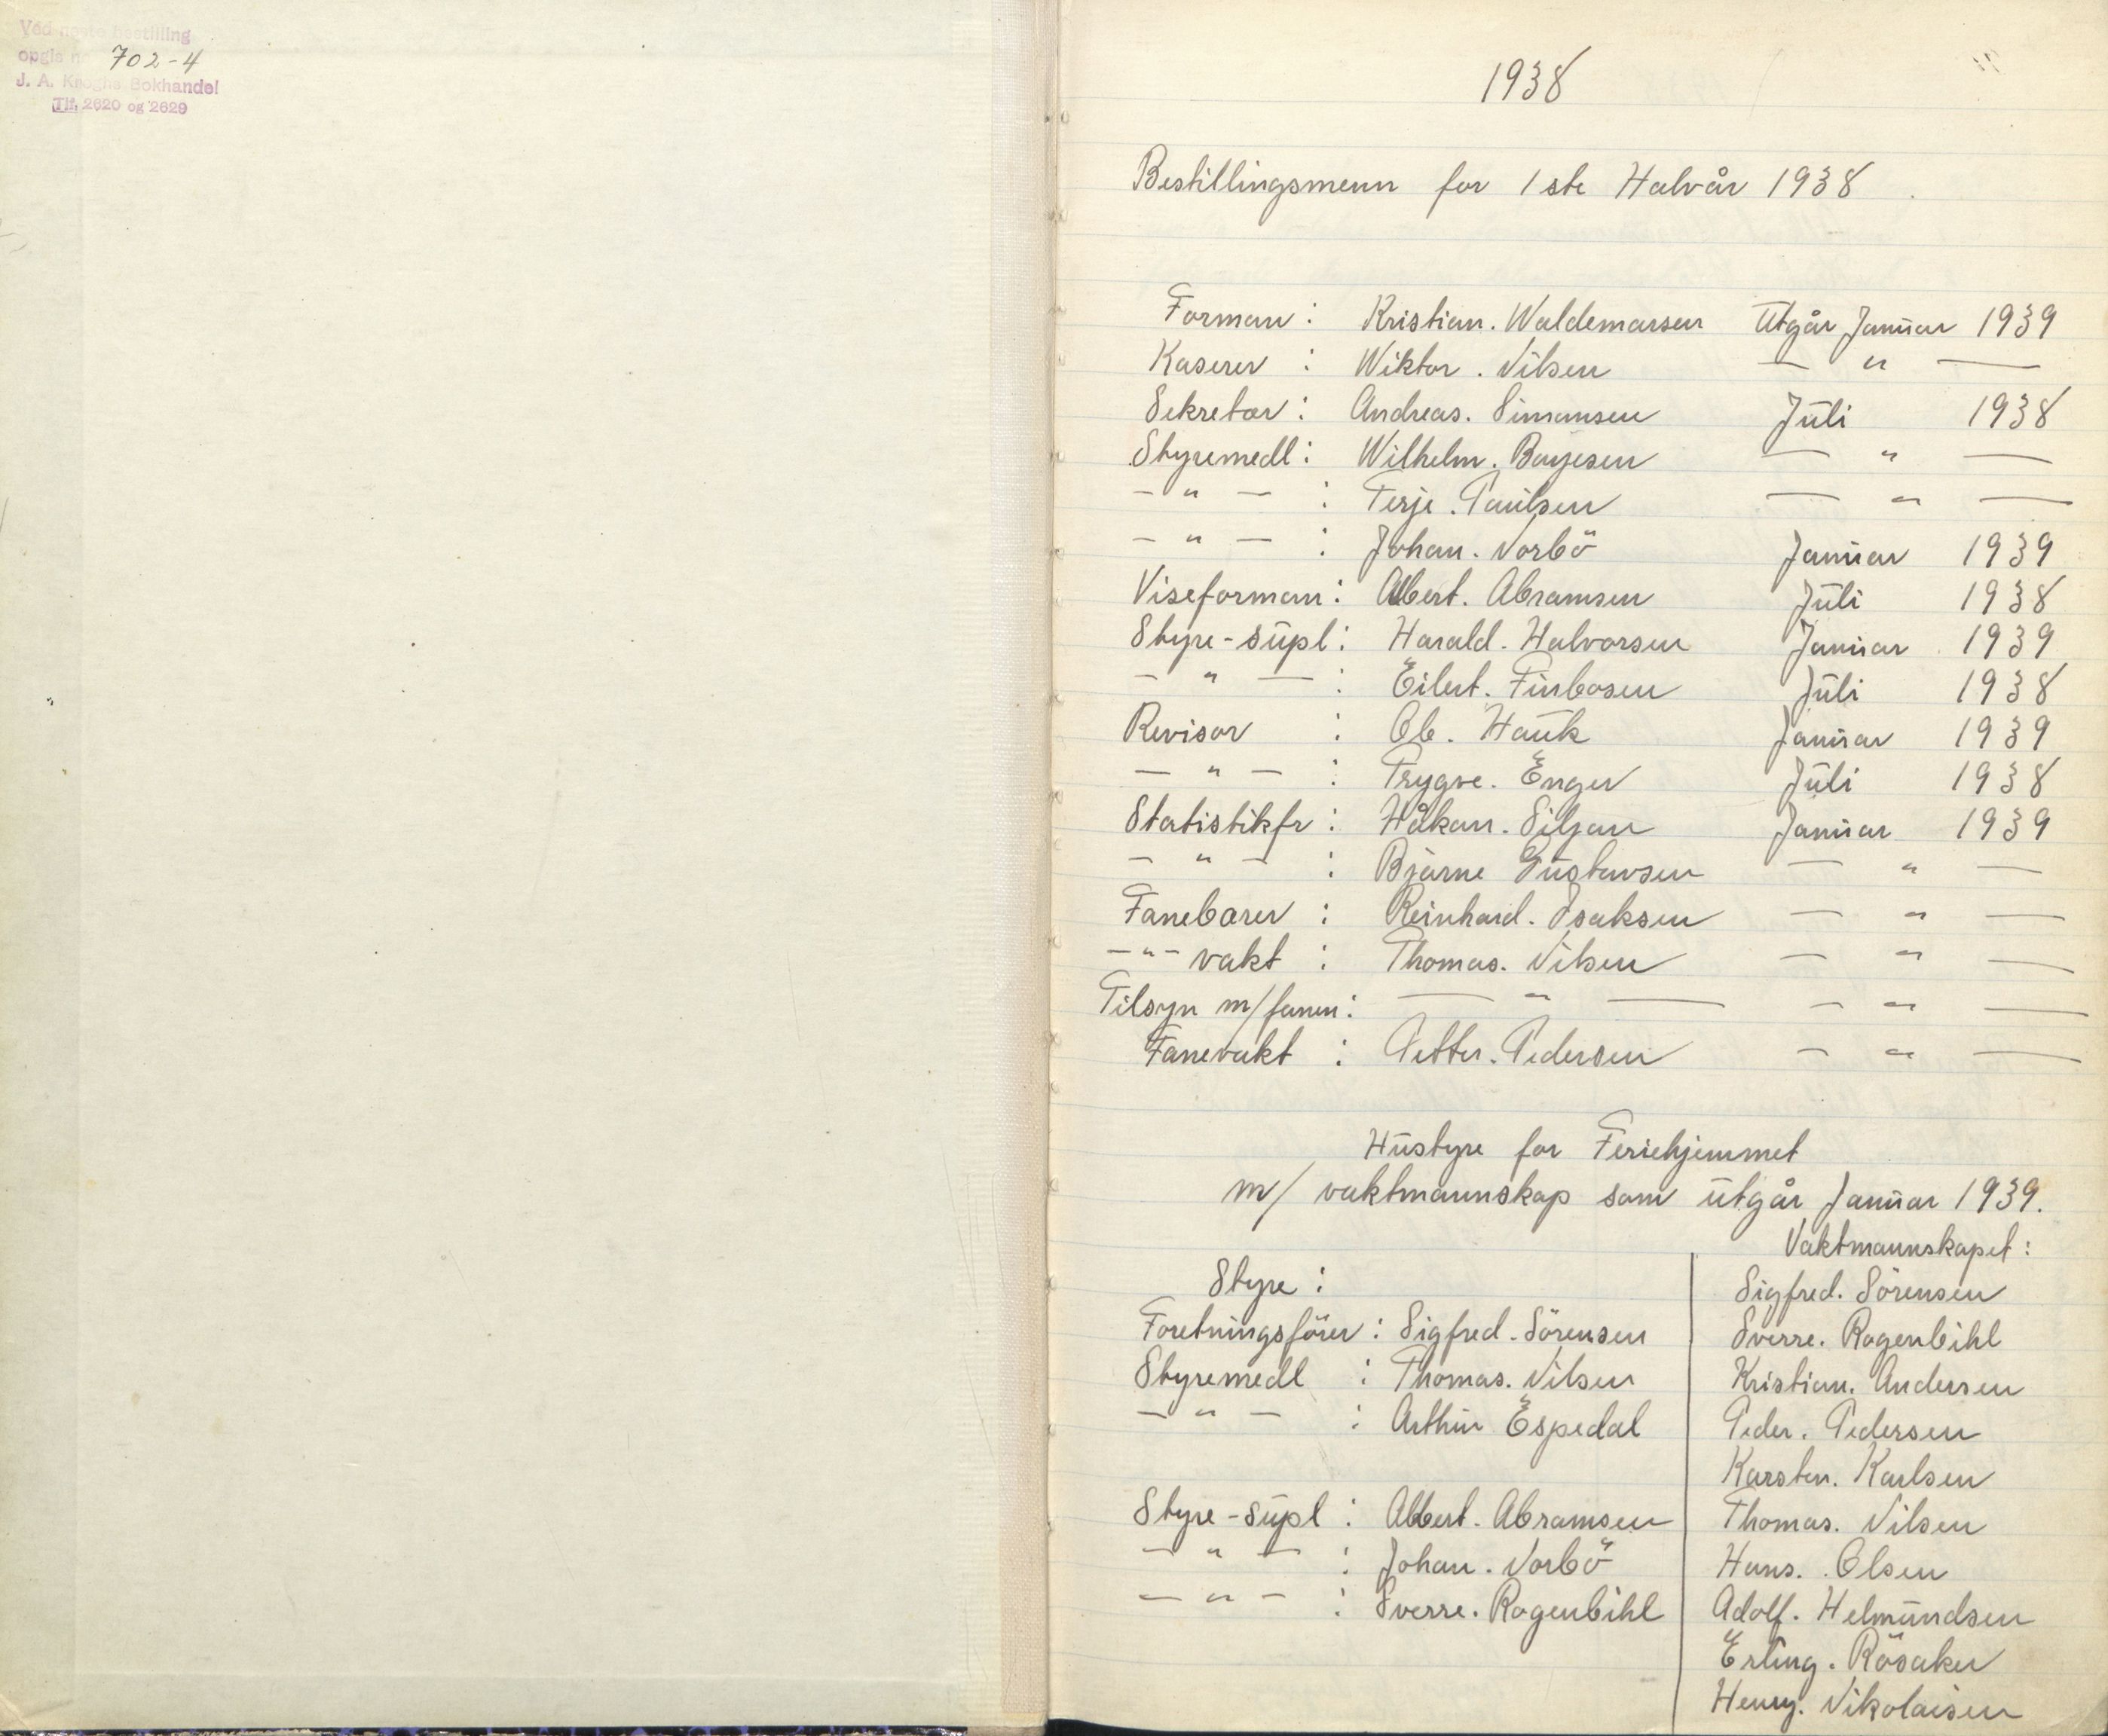 Ved neste bestilling
opgis nr 702-4
J. A. Kroghs Bokhandel
Tlf. 2620 og 2629
1938
Bestillingsmenn for 1ste Halvår 1938.
Forman : Kristian. Waldemarsen Utgår Januar 1939
Kaserer : Wiktor. Nilsen — " —
Sekretær : Andreas. Simonsen Juli 1938
Styremedl : Wilhelm. Boyesen — " —
— " — : Terje. Paulsen — " —
— " — : Johan. Norbö Januar 1939
Viseforman : Albert. Abramsen Juli 1938
Styre-supl : Harald. Halvorsen Januar 1939
— " — : Eilert. Finbosen Juli 1938
Revisor : Ole. Hauk Januar 1939
— " — : Trygve. Enger Juli 1938
Statistikfr : Håkon. Siljan Januar 1939
— " — : Bjarne Gustavsen — " —
Fanebærer : Reinhard. Isaksen — " —
— " — vakt : Thomas. Nilsen — " —
Tilsyn m/fanen : — " — — " —
Fanevakt : Petter. Pedersen — " —
Hustyre for Feriehjemmet
m/ vaktmannskap som utgår Januar 1939.
Styre :
Foretningsförer : Sigfred. Sörensen
Styremedl : Thomas. Nilsen
— " — : Arthur Espedal
Styre-supl : Albert. Abramsen
— " — : Johan. Norbö
— " — : Sverre. Rogenbihl
Vaktmannskapet :
Sigfred. Sörensen
Sverre. Rogenbihl
Kristian. Andersen
Peder. Pedersen
Karsten. Karlsen
Thomas. Nilsen
Hans. Olsen
Adolf. Helmundsen
Erling. Rösaker
Henry. Nikolaisen